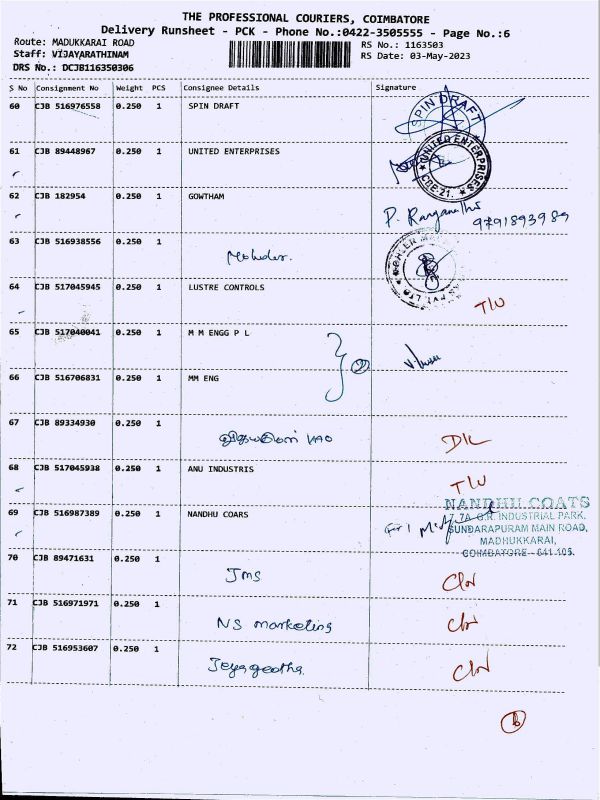 THE PROFESSIONAL COURIERS, COIMBATORE
Delivery Runsheet - PCK - Phone No.:0422-3505555 - Page No.:6
Route: MADUKKARAI ROAD
Staff: VIJAYARATHINAM
DRS No.: DCJB116350306
RS No.: 1163503
RS Date: 03-May-2023
S No Consignment No Weight PCS Consignee Details Signature
60 CJB 516976558 0.250 1 SPIN DRAFT
SPIN DRAFT
61 CJB 89448967 0.250 1 UNITED ENTERPRISES
UNITED ENTERPRISES
CBE-21.
62 CJB 182954 0.250 1 GOWTHAM
P. Ranganathan
9791893989
63 CJB 516938556 0.250 1
64 CJB 517045945 0.250 1 LUSTRE CONTROLS
T/U
65 CJB 517040041 0.250 1 M M ENGG P L
2
66 CJB 516706831 0.250 1 MM ENG
67 CJB 89334930 0.250 1
VAO
D/L
68 CJB 517045938 0.250 1 ANU INDUSTRIS
T/U
69 CJB 516987389 0.250 1 NANDHU COARS
NANDHU COATS
7, 7A, G.R. INDUSTRIAL PARK,
SUNDARAPURAM MAIN ROAD,
MADHUKKARAI,
COIMBATORE - 641 105.
70 CJB 89471631 0.250 1 Jms
71 CJB 516971971 0.250 1 NS marketing
72 CJB 516953607 0.250 1 Jeyageetha